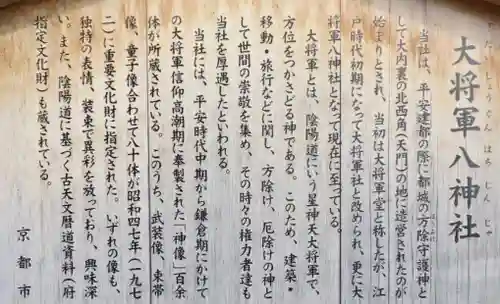 大将軍八神社
たいしょうぐんはちじんじゃ
当社は、平安建都の際に都城の方除守護神と
して大内裏の北西角（天門）の地に造営されたのが
始まりとされ、当初は大将軍堂と称したが、江
戸時代初期になって大将軍社と改められ、更に大
将軍八神社となって現在に至っている。
大将軍とは、陰陽道にいう星神天大将軍で、
方位をつかさどる神である。このため、建築・
移動・旅行などに関し、方除け、厄除けの神と
して世間の崇敬を集め、その時々の権力者達も
当社を厚遇したといわれる。
当社には、平安時代中期から鎌倉期にかけて
の大将軍信仰高潮期に奉製された「神像」百余
体が所蔵されている。このうち、武装像、束帯
像、童子像合わせて八十体が昭和四七年（一九七
二）に重要文化財に指定された。いずれの像も、
独特の表情、装束で異彩を放っており、興味深
い。また、陰陽道に基づく古天文暦道資料（府
指定文化財）も蔵されている。
京都市